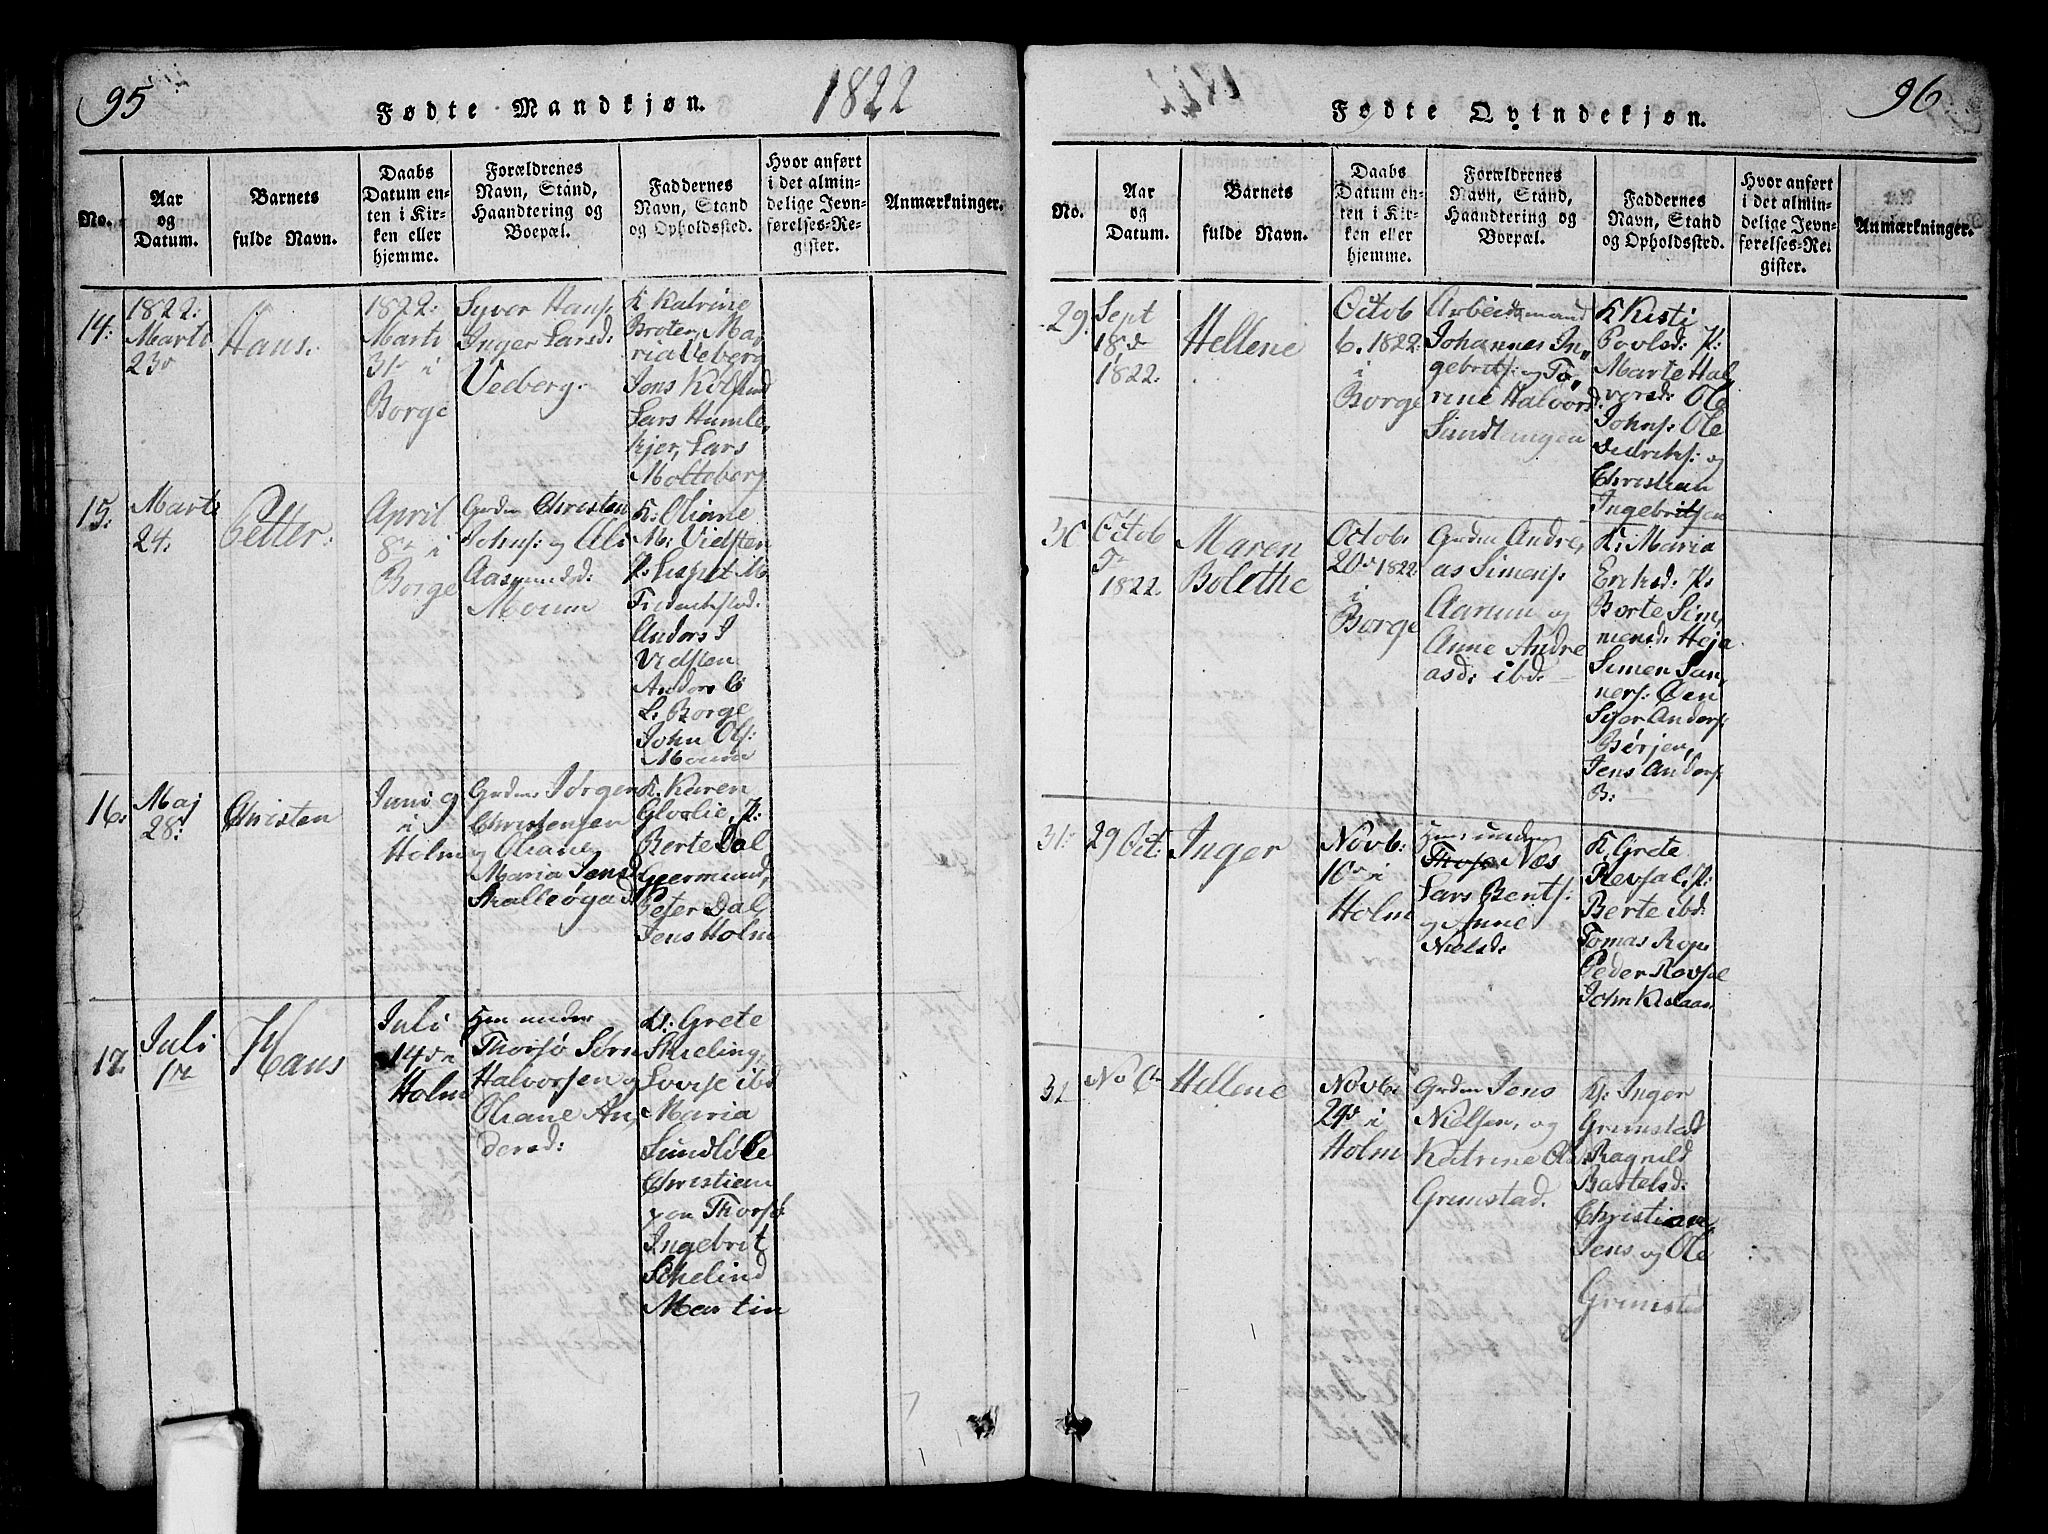 95
Fødte Mandkjøn.
1822
No.
Aar
og
Datum.
Barnets
fulde Navn.
Daabs
Datum en-
ten i Kir-
ken eller
hjemme.
Forældrenes
Navn, Stand,
Haandtering og
Boepæl.
Faddernes
Navn, Stand
og Opholdssted.
Hvor anført
i det almin-
delige Jevn-
førelses-Re-
gister.
Anmærkninger.
14:
1822:
Marti
23
Hans.
1822:
Marti
31 i
Borge
Syver Hans:
Inger Larsd:
Vedberg.
K Katrine
Broten, Ma,
ria Veberg
Jens Kölstad
Lars Humle,
kjer, Lars
Molteberg
15:
Marti
24.
Petter:
April
8 i
Borge
Grdm Christen
Johns: og Ali
Aasmunds:
Moum
K: Olinne
M: Vidsten
P: Lispet M
Fredrichstad.
Anders I
Vidsten
Anders C
L: Borge
John Ols:
Moum
16.
Maj
28:
Christen
Juni 9
i
Holm
Grdm Jörgen
Christensen
og Oliane
Maria Jensd
Skalleøgad
K. Karen
Glorlie, P:
Berte Dal
Geermund,
Peter Dal
Jens Holm
17.
Juli
1
Hans
Juli
14 i
Holm
Hm under
Thorsö Sörn
Halvorsen og
Oliane An,
dersd:
K: Grete
Skieling,
Lovise ibd
Maria
Sundlökke
Christian
paa Thorsö
Ingebrit
Schelind
Martin
96
Fødte Qvindekjøn.
No.
Aar
og
Datum.
Barnets
fulde Navn.
Daabs
Datum en-
ten i Kir-
ken eller
hjemme.
Forældrenes
Navn, Stand,
Haandtering og
Boepæl.
Faddernes
Navn, Stand
og Opholdssted.
Hvor anført
i det almin-
delige Jevn-
førelses-Re-
gister.
Anmærkninger.
29.
Sept
18
1822:
Hellene
Octob
6. 1822:
i
Borge
Arbeidsmand
Johannes In,
gebrits: og To,
rine Halvorsd:
Sundtangen
K Kisti
Povlsd: P:
Marte Hal
vorsd: Ole
Johns: Ole
Didriks: og
Christian
Ingebritsen
30
Octob
5
1822.
Maren
Bolethe
Octob:
20 1822
i
Borge
Grdm Andre,
as Simens:
Aarum og
Anne Andre
asd: ibd:
K: Maria
Eriksd: P:
Borte Sim,
mensd: Heja
Simen Gun,
ners: Öen
Siver Anders:
Börjen,
Jens Anders:
B:
31:
29 Oct:
Inger
Novb:
10 i
Holm
Hm: under
Thorsø Næs
Lars Bents:
og Anne
Nielsd:
K. Grete
Revsal, P:
Berte ibd:
Tomas Rop.
Peder Rovsal
John Kislaas
Hellene
Novb:
24 i
Holm
Grdm Jens
Nielsen, og
Katrine Ols
Grimstad.
K: Inger
Grimstad
Ragnild
Bartelsd:
Christian,
Jens og Ole
Grimstad